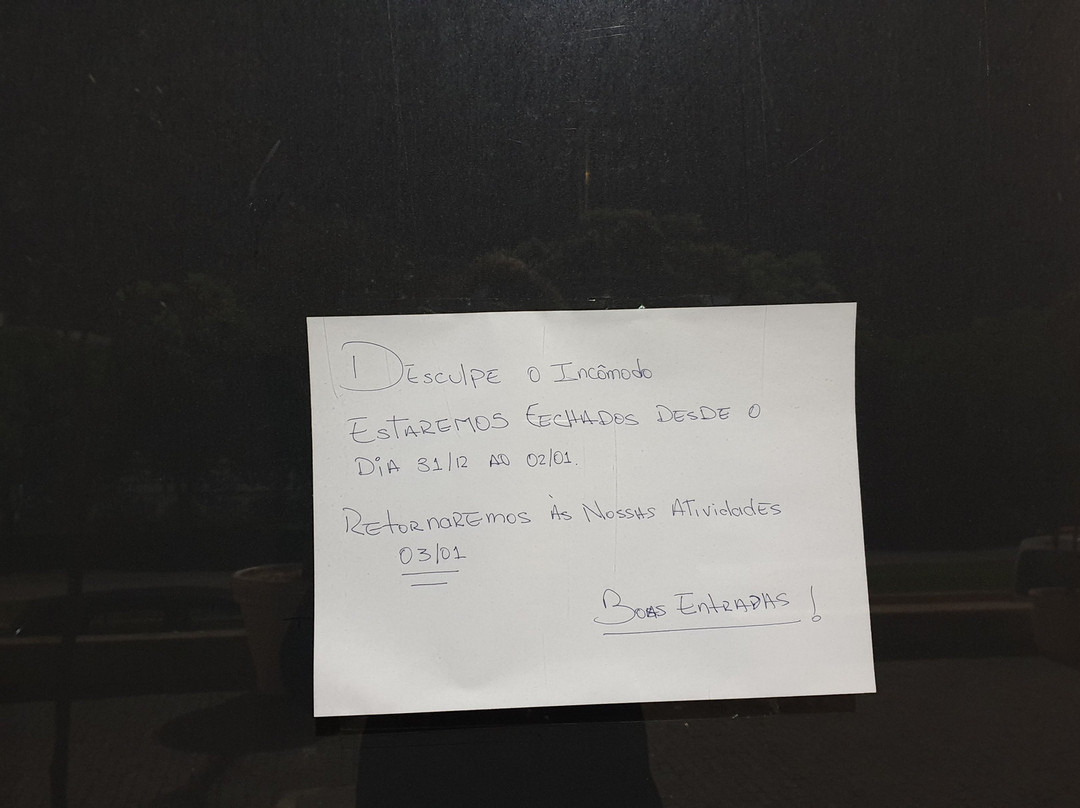 Desculpe o Incômodo
Estaremos Fechados desde o
Dia 31/12 ao 02/01.
Retornaremos às Nossas Atividades
03/01
Boas Entradas!